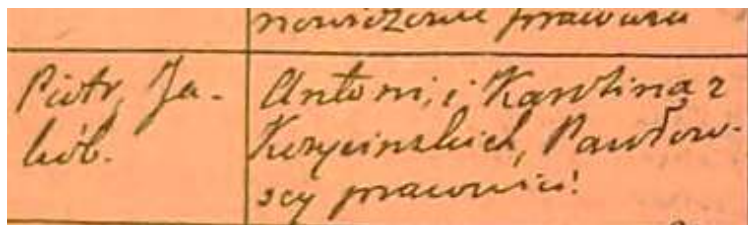 prawnicu
Piotr, Ja-
kób.
Antoni, i Karolina z
Korycinskich, Pawłow-
scy prawnici!